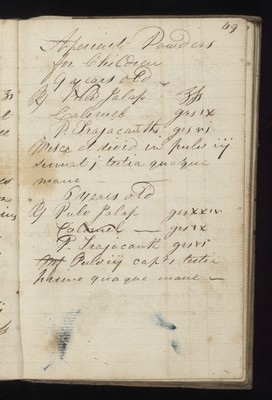 49
Aperient Powders
for Children
9 years old
℞ Pulv Jalap ʒß
Calomel grs ix
P. Tragacanth grs vi
Misce et divid in pulv iij
sumat j tertia quaque
mane —
6 years old
℞ Pulv Jalap grs xxiv
Calomel — grs ix
P. Tragacanth grs vi
Pulv iij cap s tertia
primo quaque mane —